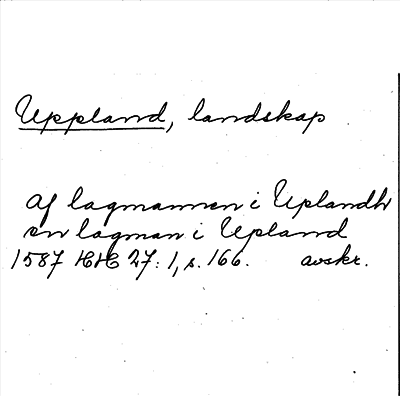 Uppland, landskap
af lagmannen i Uplandh
en lagman i Upland
1587 HH 27: 1, s. 166. avskr.